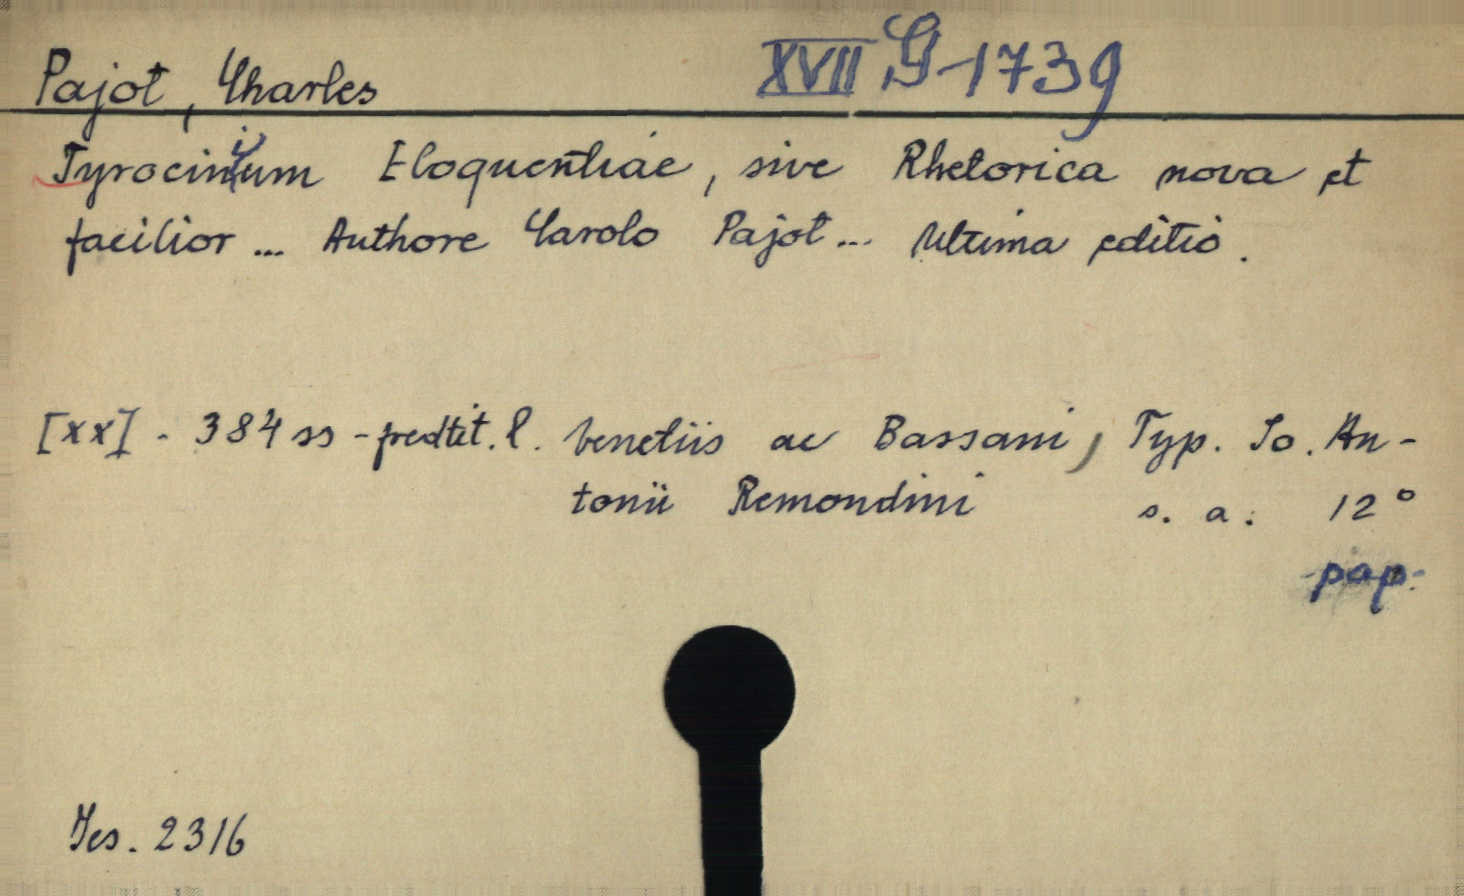 Pajot, Charles XVII G-1739
Tyrocinium Eloquentiae, sive Rhetorica nova et
facilior ... Authore Carolo Pajot ... Ultima editio.
[XX] - 384 ss - predtit. l. Venetiis ac Bassani, Typ. Jo. An-
tonii Remondini s. a. 12°
-pap-
Jes. 2316